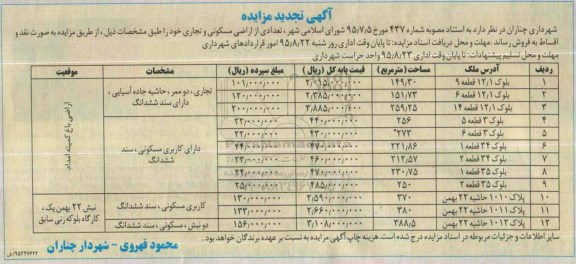 آگهی تجدید مزایده
شهرداری چناران در نظر دارد به استناد مصوبه شماره ۴۳۷ مورخ ۹۵/۷/۵ شورای اسلامی شهر، تعدادی از اراضی مسکونی و تجاری خود را طبق مشخصات ذیل، از طریق مزایده به صورت نقد و
اقساط به فروش رساند. مهلت و محل دریافت اسناد مزایده: تا پایان وقت اداری روز شنبه ۹۵/۸/۲۲ امور قراردادهای شهرداری
مهلت و محل تسلیم پیشنهادات: تا پایان وقت اداری ۹۵/۸/۲۳ واحد حراست شهرداری
ردیف آدرس ملک مساحت (مترمربع) قیمت پایه کل (ریال) مبلغ سپرده (ریال) مشخصات موقعیت
۱ بلوک ۱۲/۱ قطعه ۹ ۱۴۹/۳۰ ۲/۰۱۵/۰۰۰/۰۰۰ ۱۰۱/۰۰۰/۰۰۰ تجاری، دو ممر، حاشیه جاده آسیایی، دارای سند ششدانگ اراضی باغ کمیته امداد
۲ بلوک ۱۲/۱ قطعه ۶ ۱۵۱/۷۳ ۲/۳۸۵/۰۰۰/۰۰۰ ۱۲۰/۰۰۰/۰۰۰
۳ بلوک ۱۲/۱ قطعه ۱۴ ۲۵۹/۲۵ ۳/۸۸۵/۰۰۰/۰۰۰ ۲۰۰/۰۰۰/۰۰۰
۴ بلوک ۳ قطعه ۵ ۲۵۶ ۴۴۰/۰۰۰/۰۰۰ ۲۲/۰۰۰/۰۰۰ دارای کاربری مسکونی، سند ششدانگ
۵ بلوک ۳ قطعه ۶ ۲۷۳ ۴۳۰/۰۰۰/۰۰۰ ۲۲/۰۰۰/۰۰۰
۶ بلوک ۳۴ قطعه ۱ ۲۲۱/۸۶
۷ بلوک ۳۴ قطعه ۲ ۲۱۲/۵۷ ۴۶۰/۰۰۰/۰۰۰
۸ بلوک ۳۵ قطعه ۱ ۲۳۰/۷۵
۹ بلوک ۳۵ قطعه ۲ ۲۵۰
۱۰ پلاک ۱۰۱۰ حاشیه ۲۲ بهمن ۳۷۰ ۲/۵۹۰/۰۰۰/۰۰۰ ۱۳۰/۰۰۰/۰۰۰ کاربری مسکونی، سند ششدانگ نبش ۲۲ بهمن یک، کارگاه بلوکه زنی سابق
۱۱ پلاک ۱۰۱۱ حاشیه ۲۲ بهمن ۳۸۰ ۲/۶۶۰/۰۰۰/۰۰۰ ۱۳۳/۰۰۰/۰۰۰
۱۲ پلاک ۱۰۱۲ حاشیه ۲۲ بهمن ۳۸۸/۵ ۳/۱۰۸/۰۰۰/۰۰۰ ۱۵۶/۰۰۰/۰۰۰ دو نبش، مسکونی، سند ششدانگ
سایر اطلاعات و جزئیات مربوطه در اسناد مزایده درج شده است. هزینه چاپ آگهی مزایده به نسبت بر عهده برندگان خواهد بود.
محمود قهروی - شهردار چناران